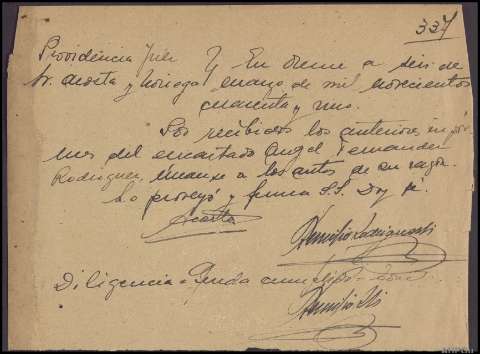 337
Providencia Juez En Orense a seis de
Sr. Acosta y Noriega marzo de mil novecientos
cuarenta y uno.
Por recibidos los anteriores infor
mes del encartado Angel Fernandez
Rodriguez, unanse a los autos de su razon.
Lo proveyó y firma S.S. Doy fe.
Acosta
Diligencia = Queda cumplido